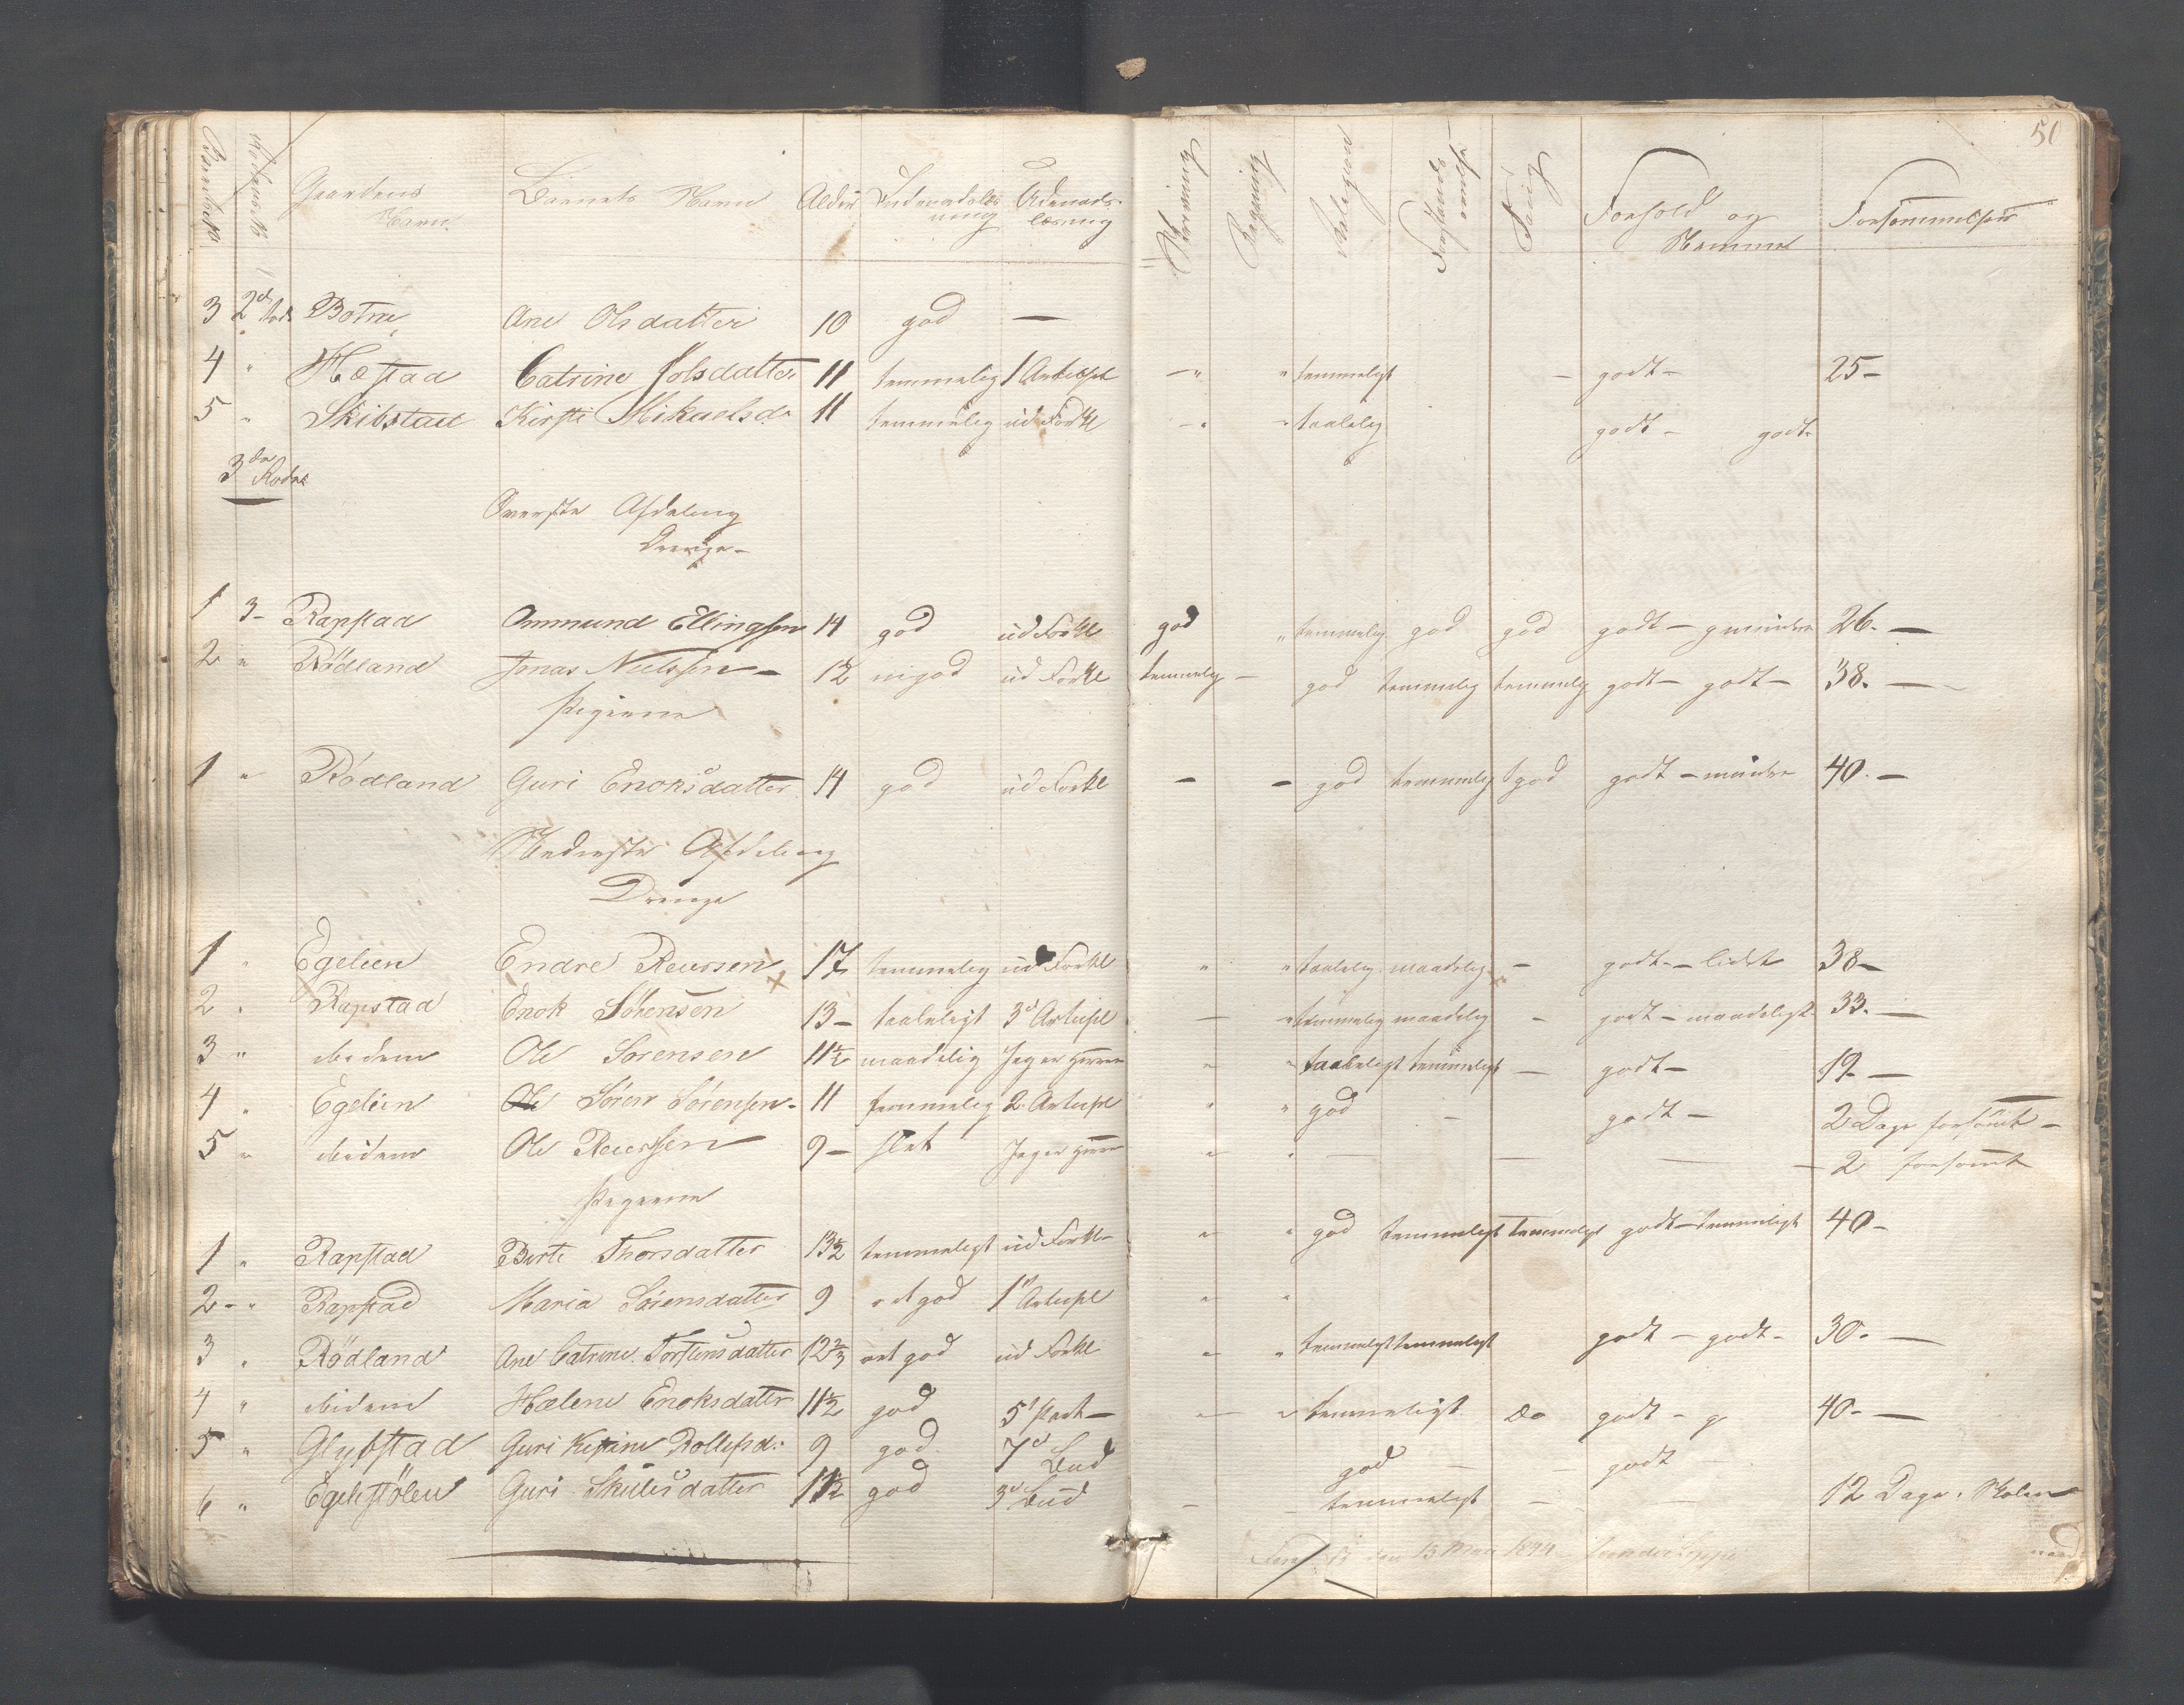 50
Gaardens Navn Barnets Navn Alder Indenadslæsning Udenadslæsning Skrivning Regning Religion Forstands Sang Forhold og Nemme Forsømmelser
3 2den Rode Botne Ane Olsdatter 10 god —
4 " Hæstad Catrine Jolsdatter 11 temmelig 1 Artikel — " " temmeligt — godt — 25 —
5 " Skibstad Kirsti Mikaelsd. 11 temmelig ud Forkl — " taalelig godt — godt
3die Rode
Øverste Afdeling
Drenge —
1 3 — Rapstad Ommund Ellingsen 14 god ud Forkl god " temmelig god god godt — mindre 26. —
2 " Rødland Jonas Nielsen — 12 god ud Forkl temmelig — god temmelig temmelig godt — godt — 38. —
Pigerne
1 " Rødland Guri Enoksdatter 14 god ud Forkl — — god temmelig god godt — mindre 40. —
Nederste Afdeling
Drenge
1 " Egelien Endre Reiersen 17 temmelig ud Forkl " " taalelig maadelig — godt — lidet 38 —
2 " Rapstad Enok Sørensen 13 — taaleligt 3d Artikel — " temmelig maadelig — godt — maadeligt 33. —
3 " ibidem Ole Sørensen 11½ maadelig " " taaleligt temmeligt — godt — 19. —
4 " Egelien Ole Søren Sørensen — 11 temmelig 2. Artikel " " god — godt — 2 Dage forsømt —
5 " ibidem Ole Reiersen 9 — slet " " — — — 2 forsømt
Pigerne
1 " Rapstad Berte Thorsdatter 13½ temmeligt ud Forkl — " " god temmeligt temmeligt godt — temmeligt 40 —
2 — " Rapstad Maria Sørensdatter 9 ret god 1 Artikel " "
3 " Rødland Ane Catrine Torstensdatter 12⅔ ret god ud Forkl " " temmeligt temmeligt godt — godt — 30. —
4 " ibidem Hælene Enoksdatter 11½ god 5 Part — " " temmeligt Do godt — g 40 — —
5 " Glypstad Guri Rollefsd. 9 god 7d Bud god — — godt —
6 " Egelistølen Guri Skulesdatter 11½ god 3d Bud — temmeligt — — 12 Dage i Skolen
den 13 Mai